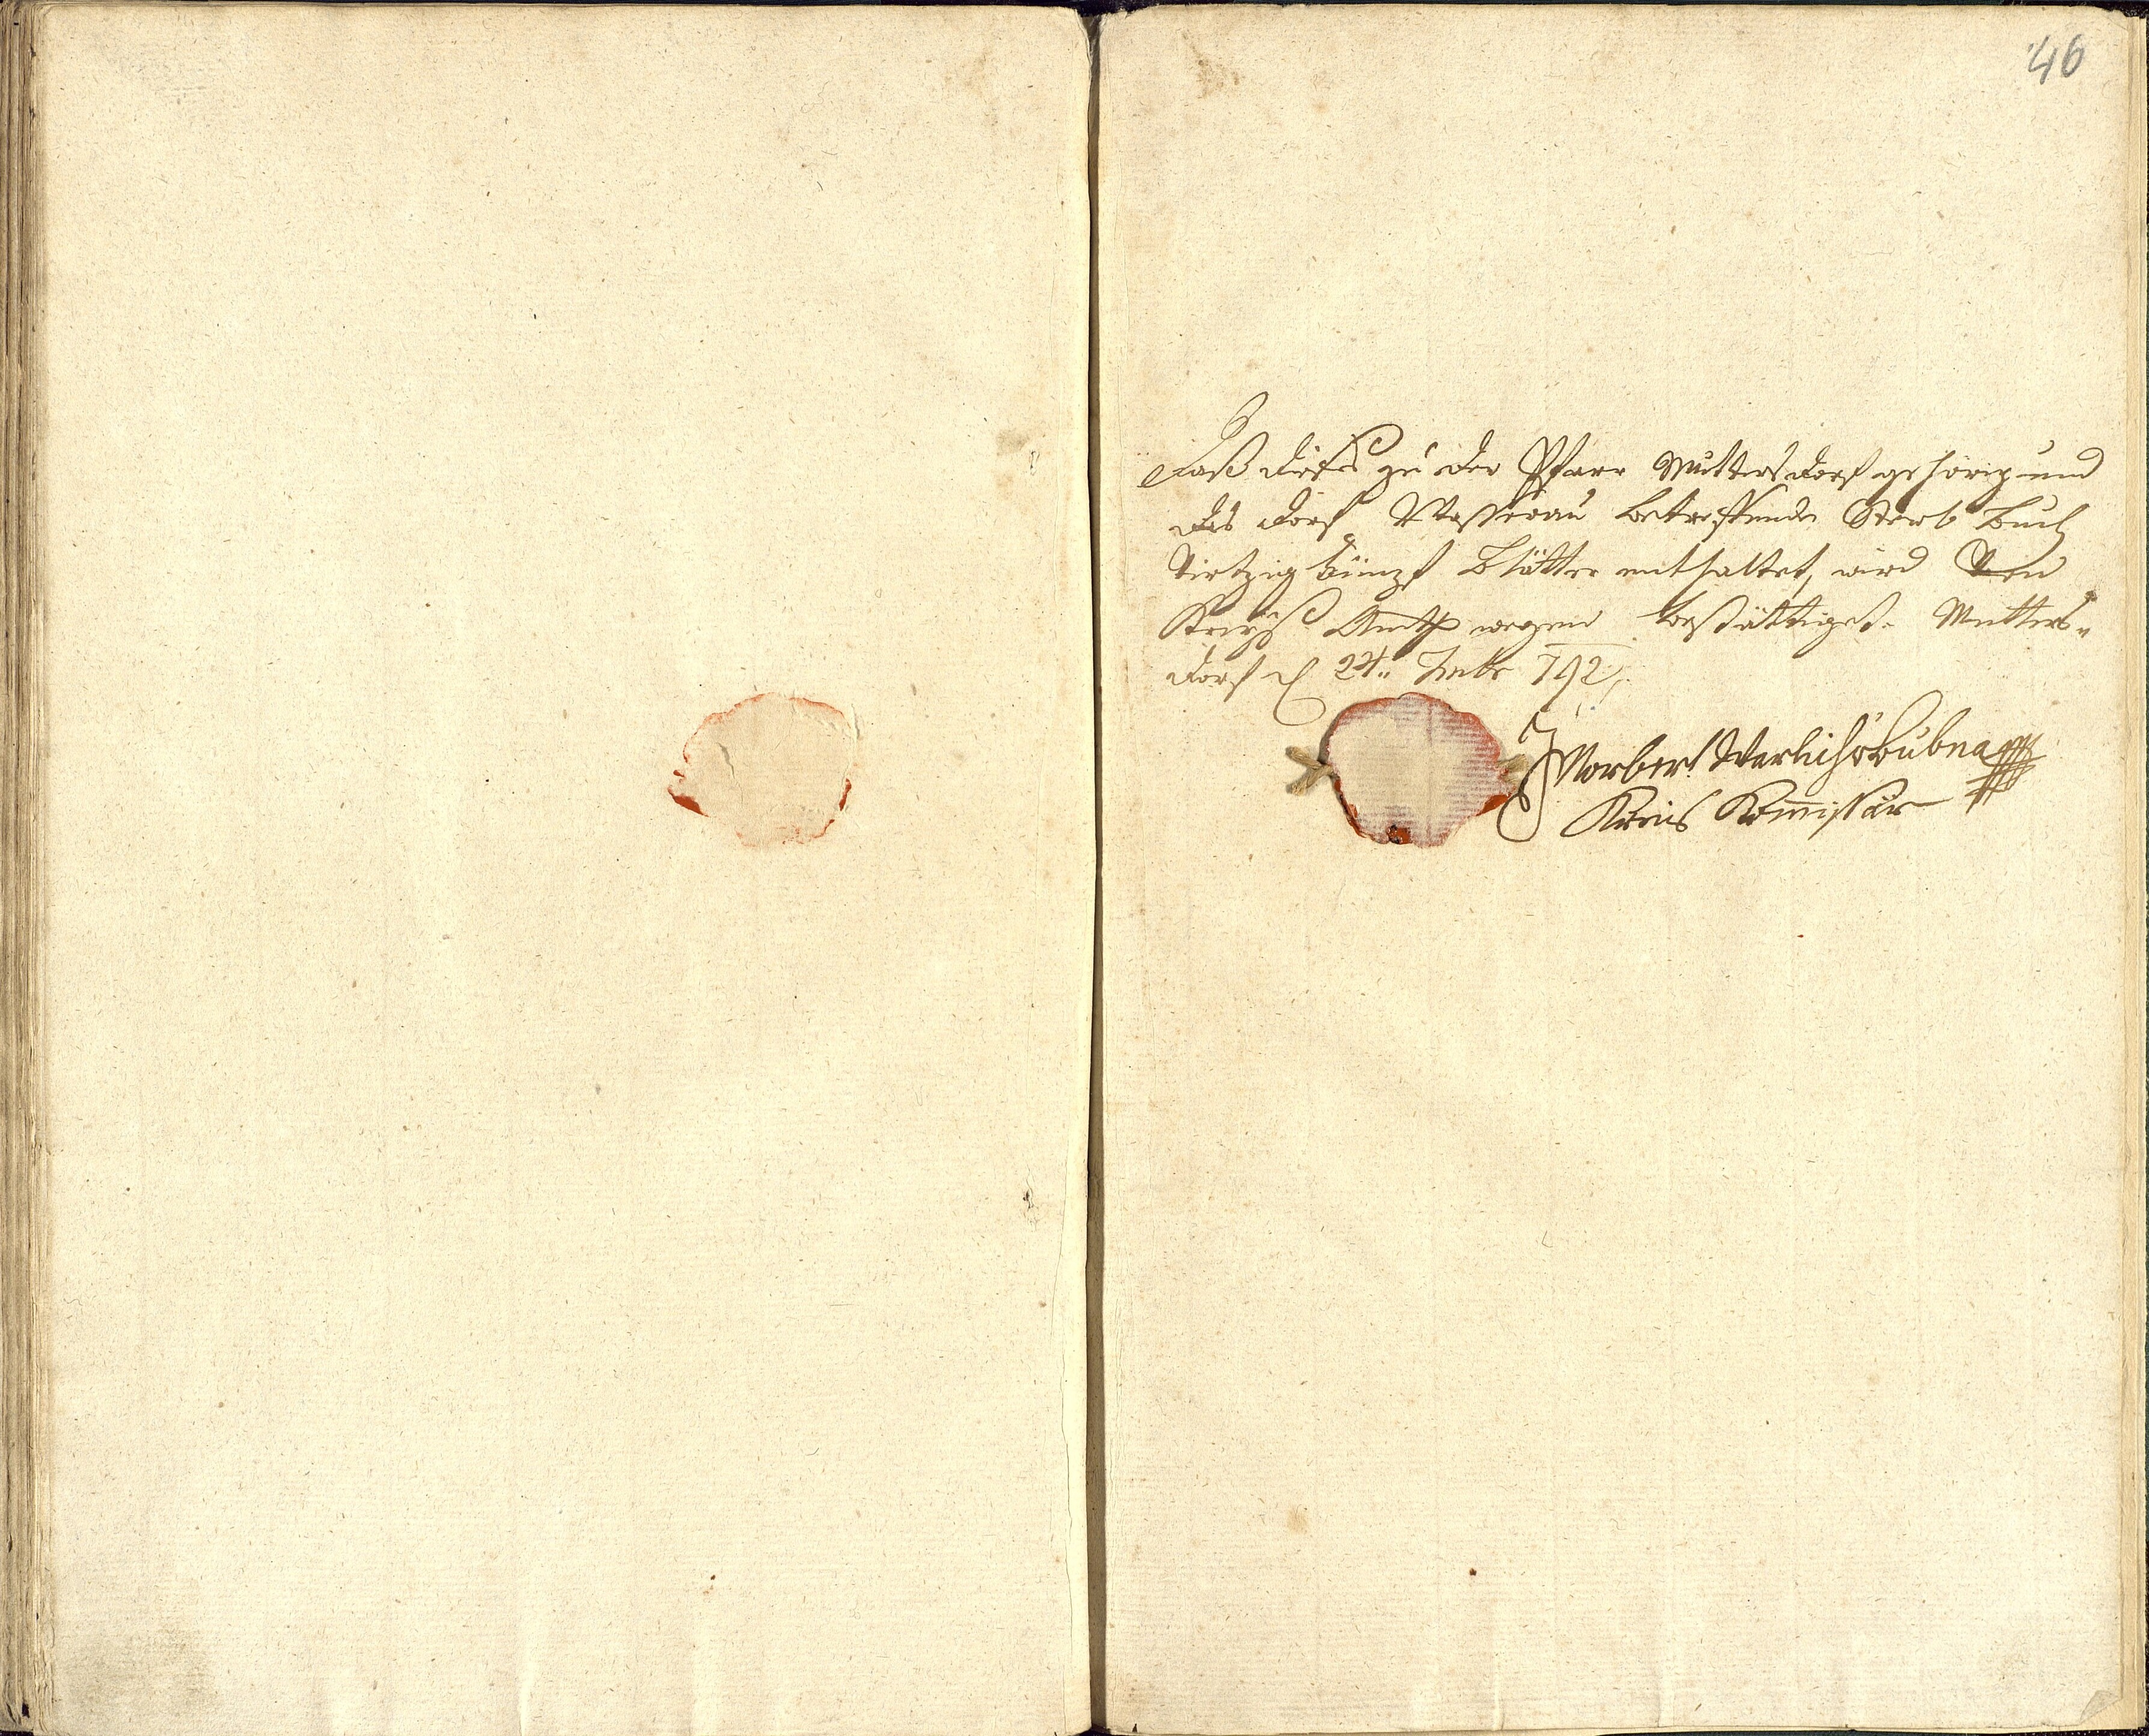 46
Daß dieses zu der Pfarr Muttersdorf gehörig und
das Dorf Wasserau betreffende Sterb Buch
Viertzig Fünpf Blätter enthaltet, wird Von
Kreyß Amts wegen bestättiget. Mutters-
dorf d 24..  792
Norbert Warlich v Bubna
Kreis Kom̅issär